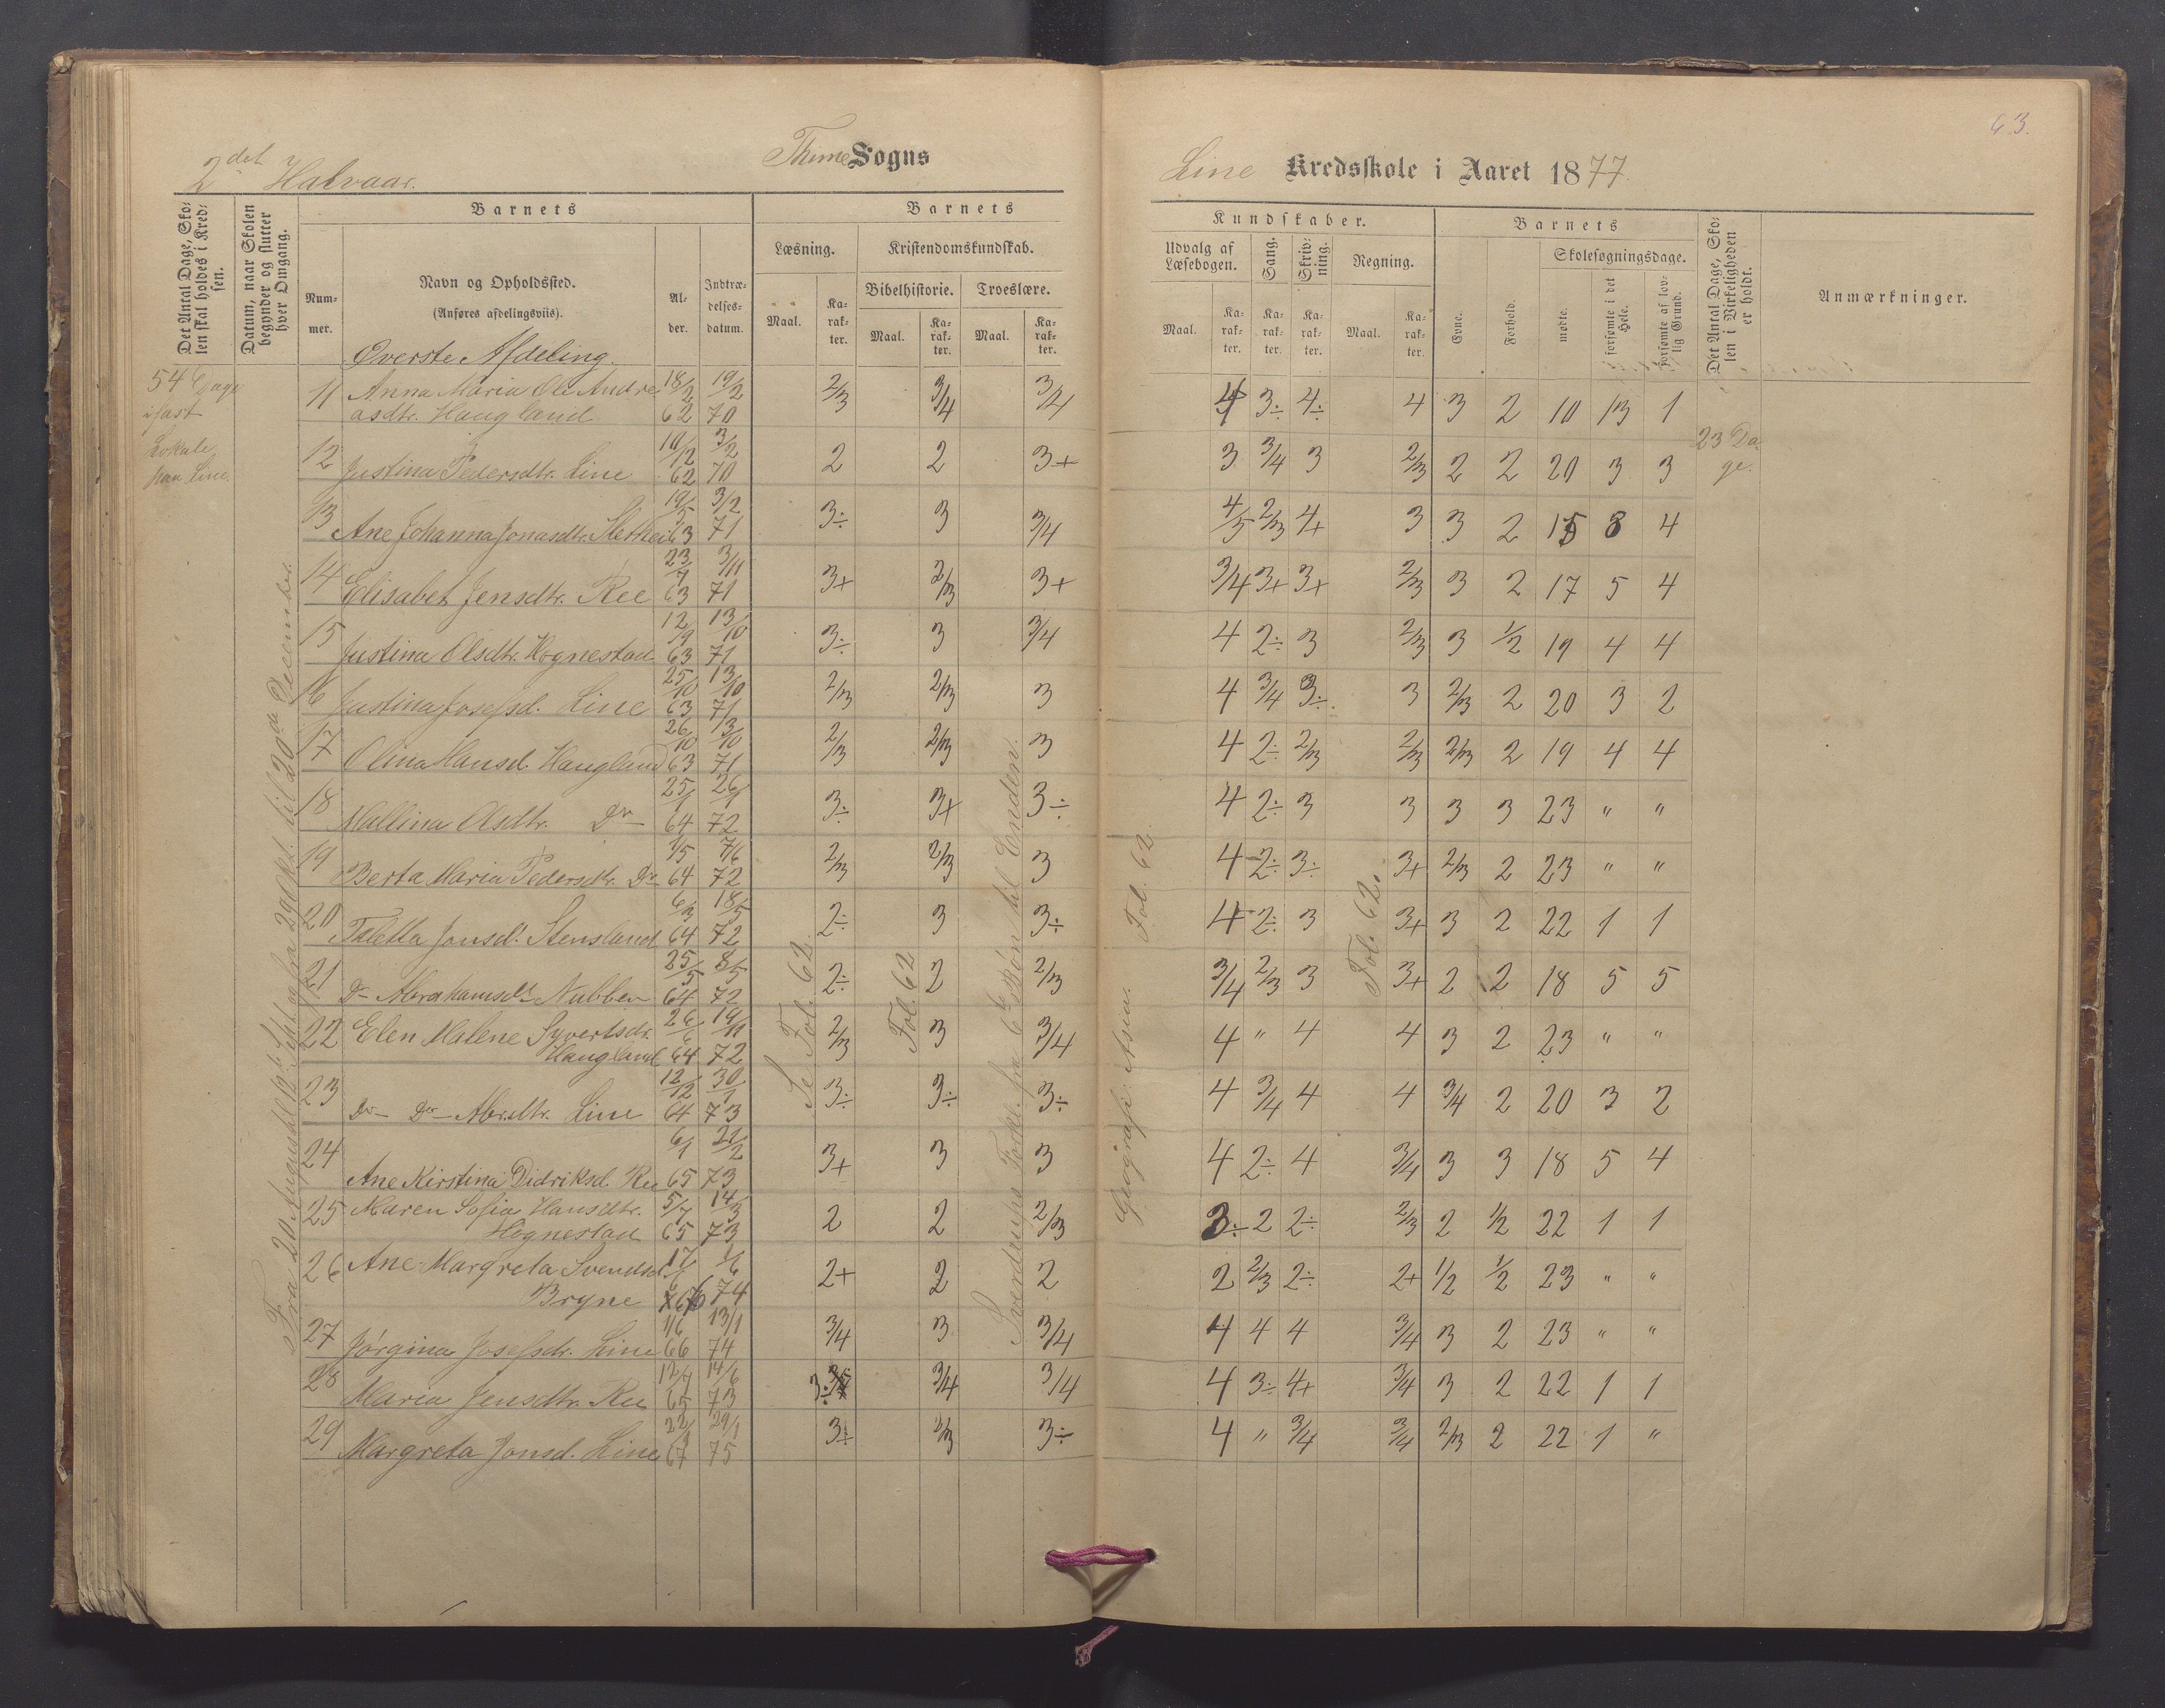 63.
2det Halvaar.
Thime Sogns
Line Kredsskole i Aaret 1877.
Det Antal Dage, Skolen skal holdes i Kredsen.
Datum, naar Skolen begynder og slutter hver Omgang.
Barnets
Nummer.
Navn og Opholdssted.
(Anføres afdelingsviis).
Alder.
Indtrædelsesdatum.
Barnets
Læsning.
Kristendomskundskab.
Bibelhistorie.
Troeslære.
Maal.
Karakter.
Maal.
Karakter.
Maal.
Karakter.
Kundskaber.
Udvalg af Læsebogen.
Sang.
Skrivning.
Regning.
Maal.
Karakter.
Karakter.
Karakter.
Maal.
Karakter.
Barnets
Evne.
Forhold.
Skolesøgningsdage.
mødte.
forsømte i det Hele.
forsømte af lovlig Grund.
Det Antal Dage, Skolen i Virkeligheden er holdt.
Anmærkninger.
Øverste Afdeling.
54 Dage
i fast
Lokale
paa Line.
23 Dage.
11 Anna Maria Ole Andreasdtr. Haugland 18/2 62 19/2 70 2/3 3/4 3/4 4 3÷ 4÷ 4 3 2 10 13 1
12 Justina Pedersdtr. Line 10/12 62 3/2 70 2 2 3+ 3 3/4 3 2/3 2 2 20 3 3
13 Ane Johanna Jonasdtr. Slethei 19/5 63 3/2 71 3÷ 3 3/4 4/5 2/3 4+ 3 3 2 15 8 4
14 Elisabet Jensdtr. Ree 23/7 63 3/11 71 3+ 2/3 3+ 3/4 3+ 3+ 2/3 3 2 17 5 4
15 Justina Olsdtr. Hognestad 12/9 63 13/10 71 3÷ 3 3/4 4 2÷ 3 2/3 3 1/2 19 4 4
16 Justina Josefsd. Line 25/10 63 13/10 71 2/3 2/3 3 4 3/4 3÷ 3 2/3 2 20 3 2
17 Olina Hansd. Haugland 26/10 63 13/10 71 2/3 2/3 3 4 2÷ 2/3 2/3 2/3 2 19 4 4
18 Mallina Olsdtr. Do 25/1 64 26/1 72 3÷ 3+ 3÷ 4 2÷ 3 3 3 3 23 " "
19 Berta Maria Pedersdtr. Do 1/5 64 7/6 72 2/3 2/3 3 4 2÷ 3÷ 3+ 2/3 2 23 " "
20 Taletta Jonsd. Stensland 6/3 64 18/5 72 2÷ 3 3÷ 4 2÷ 3 3+ 3 2 22 1 1
21 Do Abrahamsdt Nubben 25/5 64 8/5 72 2÷ 2 2/3 3/4 2/3 3 3+ 2 2 18 5 5
22 Elen Malene Syvertsdr. Haugland 26/6 64 19/11 72 2/3 3 3/4 4 " 4 4 3 2 23 " "
23 Do Do Abr.dtr. Line 12/12 64 30/1 73 3÷ 3÷ 3÷ 4 3/4 4 4 3/4 2 20 3 2
24 Ane Kirstina Didriksd. Ree 6/1 65 21/2 73 3+ 3 3 4 2÷ 4 3/4 3 3 18 5 4
25 Maren Sofia Hansdtr. Hognestad 5/7 65 14/3 73 2 2 2/3 3÷ 2 2÷ 2/3 2 1/2 22 1 1
26 Ane Margreta Svendsd. Bryne 17/6 66 1/6 74 2+ 2 2 2 2/3 2÷ 2+ 1/2 1/2 23 " "
27 Jørgina Josefsdr. Line 1/6 66 13/1 74 3/4 3 3/4 4 4 4 3/4 3 2 23 " "
28 Maria Jensdtr. Ree 12/7 65 14/6 73 3÷ 3/4 3/4 4 3÷ 4+ 3/4 3 2 22 1 1
29 Margreta Jonsd. Line 22/1 67 29/1 75 3÷ 2/3 3÷ 4 " 3/4 3/4 2/3 2 22 1 "
Se Fol. 62.
Fol. 62
Sverdrups Forkl. fra 6te Bøn til Enden.
Geografi: Asien. Fol. 62.
Fol. 62.